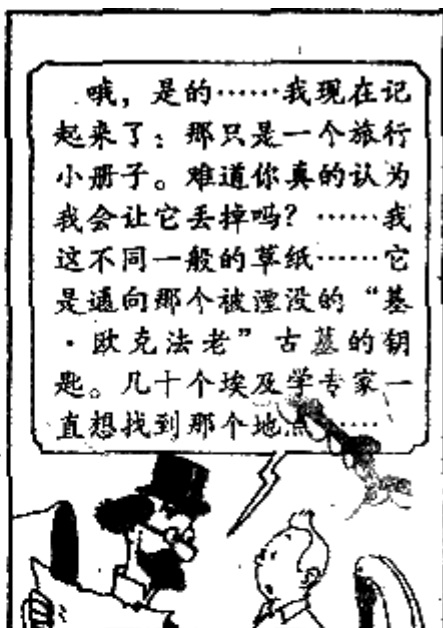 哦，是的……我现在记
起来了：那只是一个旅行
小册子。难道你真的认为
我会让它丢掉吗？……我
这不同一般的草纸……它
是通向那个被湮没的“基
·欧克法老”古墓的钥
匙。几十个埃及学专家一
直想找到那个地点……